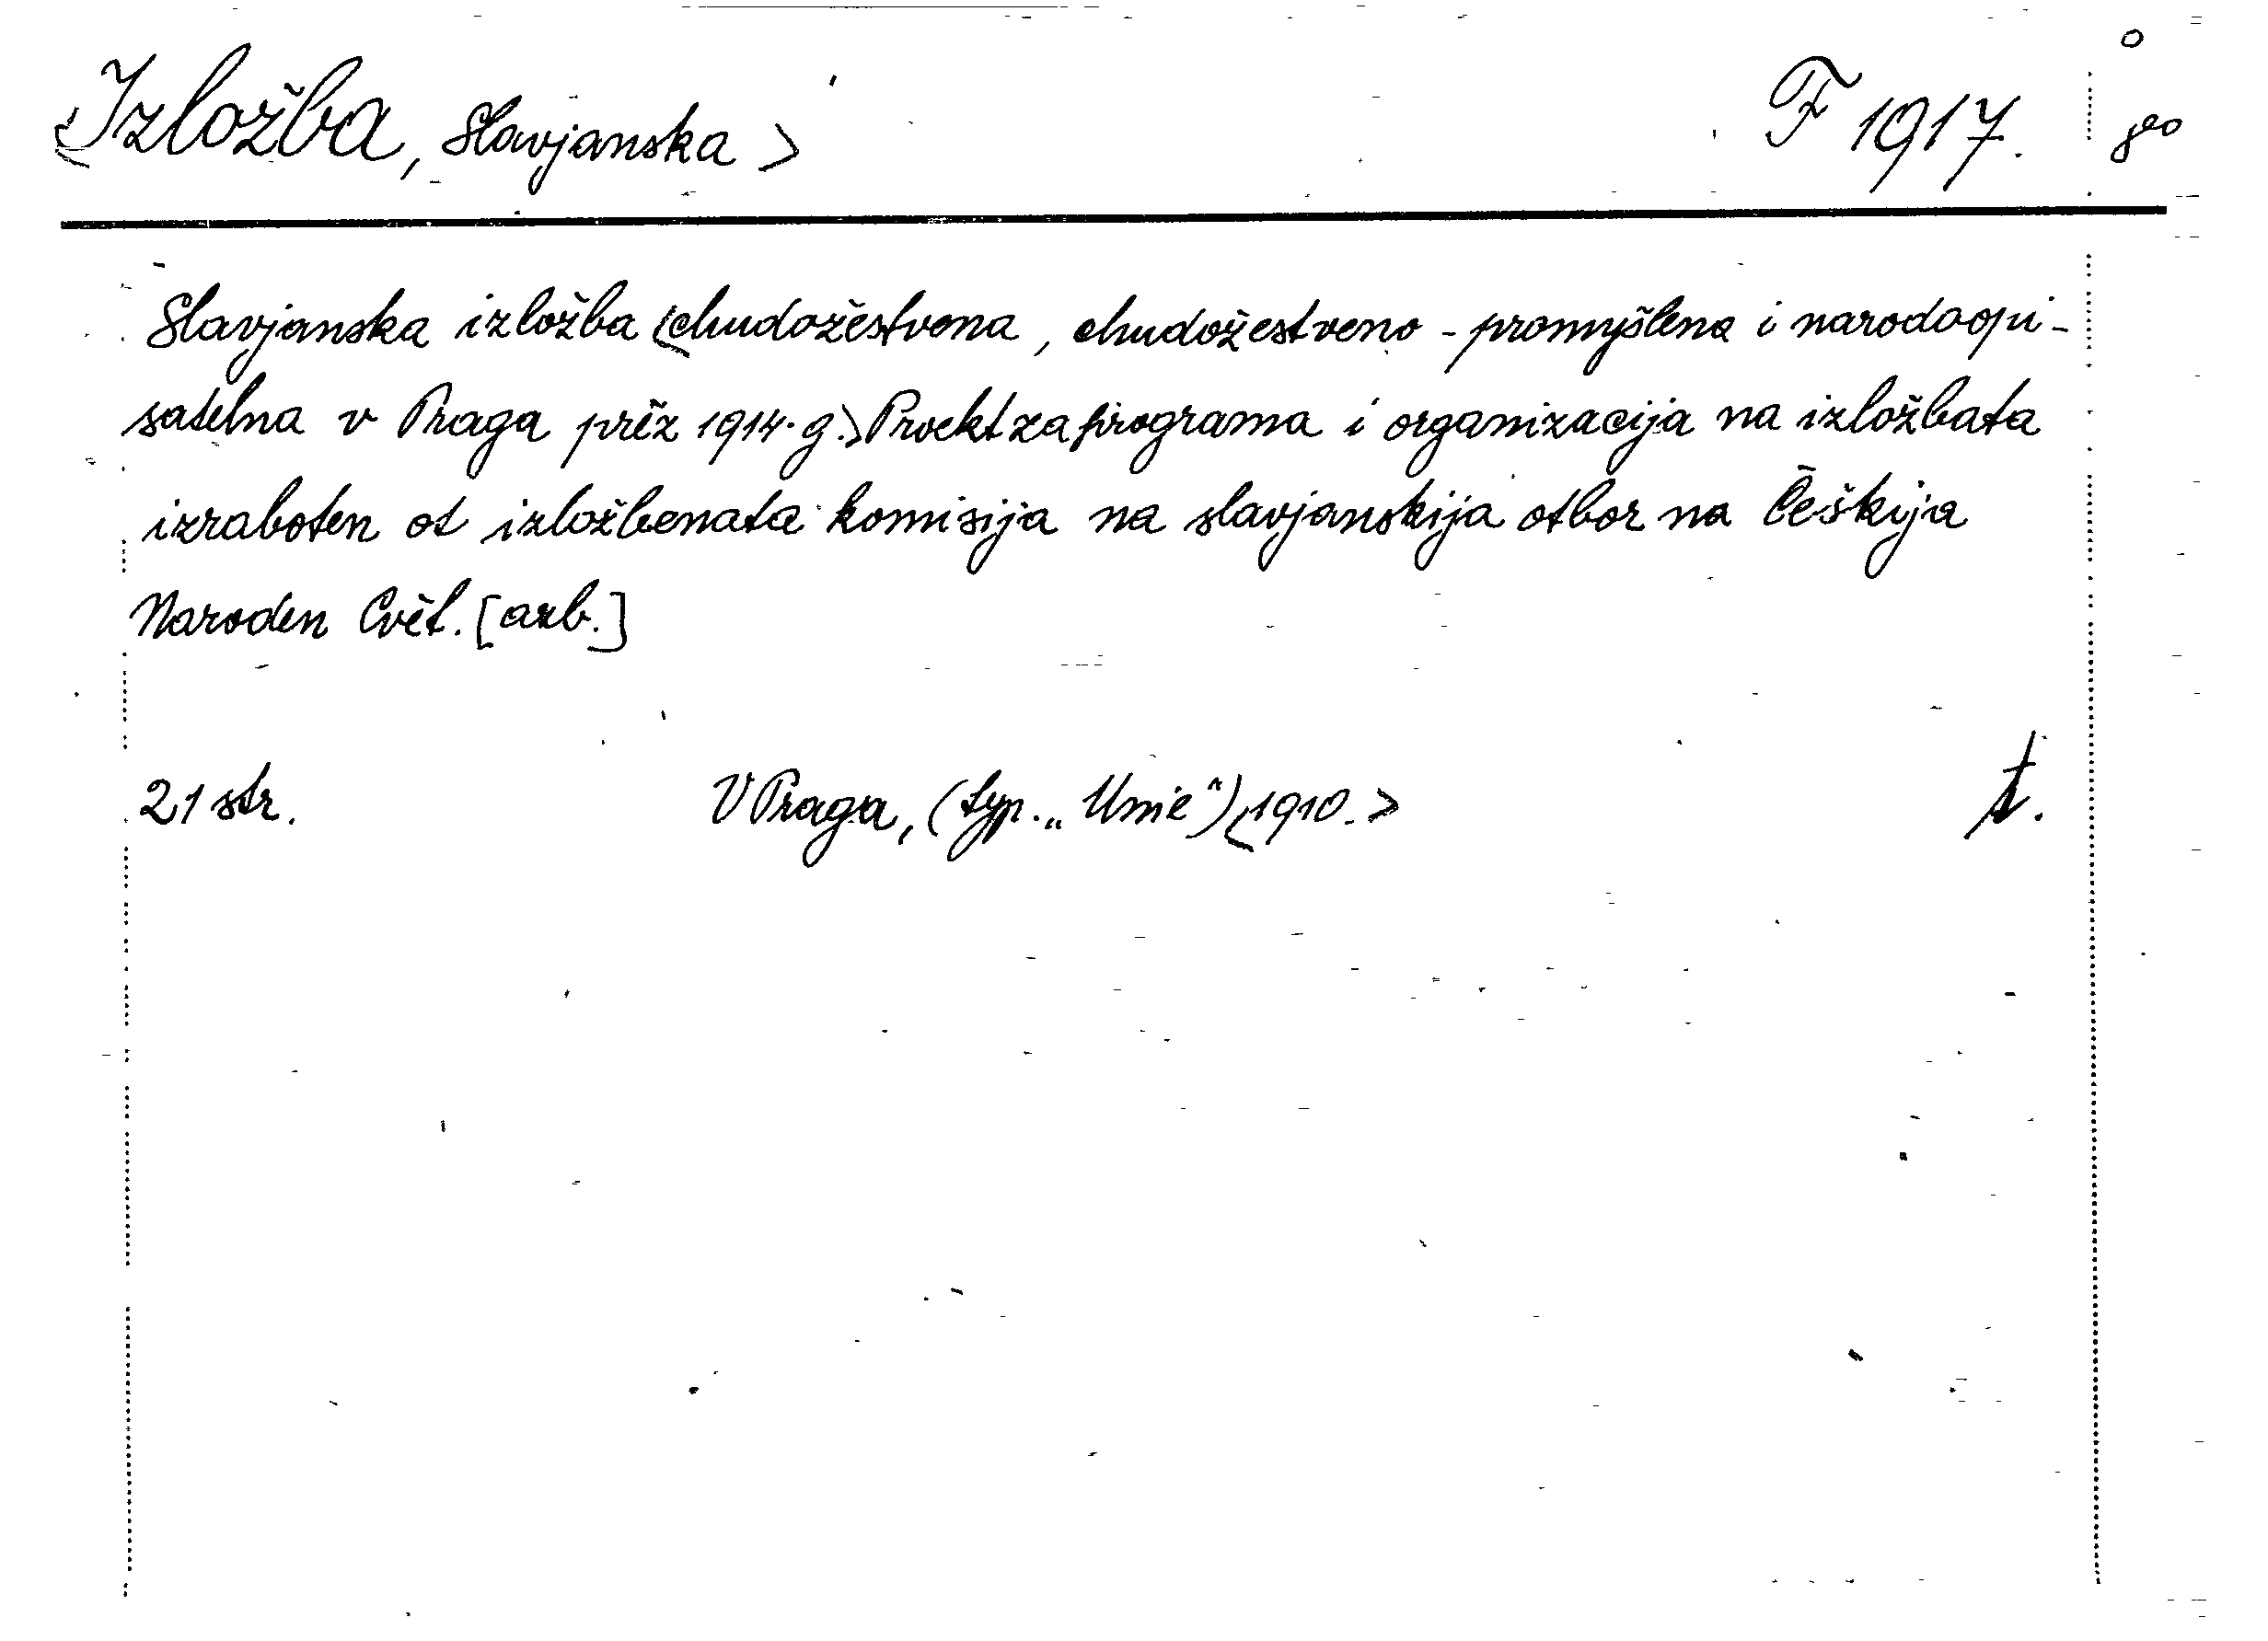 <Izložba, Slavjanska> F 1917. 8°
Slavjanska izložba <chudožestvena, chudožestveno-promyšlena i narodoopi-
satelna v Praga prěz 1914. g.> Proekt za programa i organizacija na izložbata
izraboten ot izložbenata komisija na slavjanskija otbor na Češkija
Naroden Cvět. [azb.]
21 str. V Praga, (typ. „Unie“) <1910.> t.